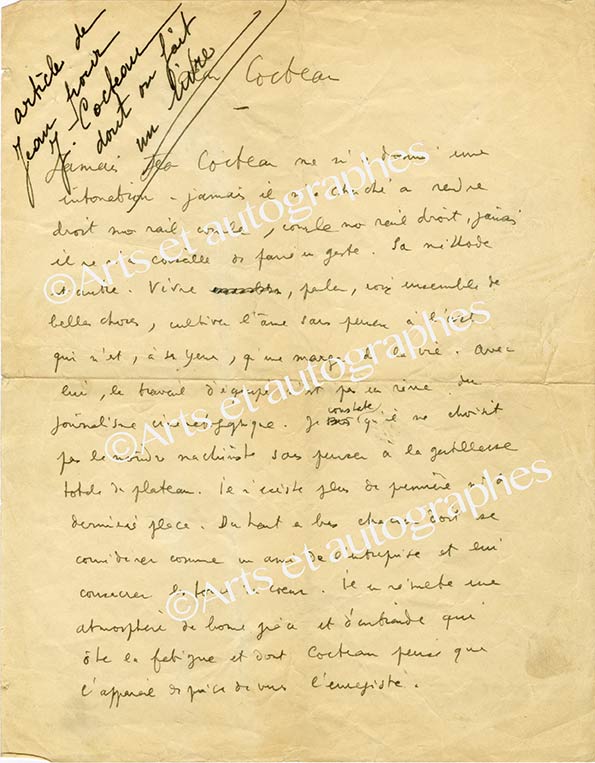 article de
Jean pour
J. Cocteau
dont on fait
un livre
Jean Cocteau
Jamais Jean Cocteau ne m'a donné une
intonation. jamais il n'a cherché à rendre
droit mon œil, jamais
il ne m'a conseillé de faire un geste. Sa méthode
est autre. Vivre, parler, voir ensemble de
belles choses, cultiver l'âme sans penser à l'art
qui n'est, à ses yeux, qu'une marge de la vie. Avec
lui, le travail d'équipe n'est pas un rêve du
journalisme cinématographique. Je constate qu'il ne choisit
pas le moindre machiniste sans penser à la gentillesse
totale du plateau. Il n'existe plus de première ni de
dernière place. Du haut en bas chacun doit se
considérer comme un ami de l'entreprise et lui
consacrer le fond du cœur. Il en résulte une
atmosphère de bonne grâce et d'entraide qui
ôte la fatigue et dont Cocteau pense que
l'appareil de prise de vues l'enregistre.
©Arts et autographes
©Arts et autographes
©Arts et autographes